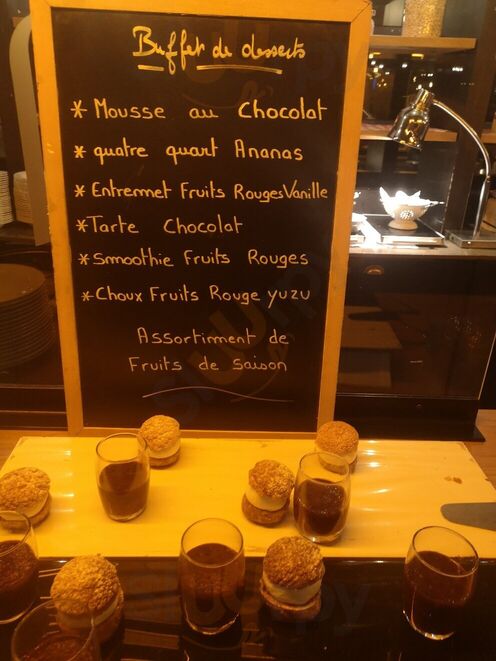 Buffet de desserts
* Mousse au Chocolat
* quatre quart Ananas
* Entremet Fruits Rouges Vanille
* Tarte Chocolat
* Smoothie Fruits Rouges
* Choux Fruits Rouge yuzu
Assortiment de
Fruits de saison